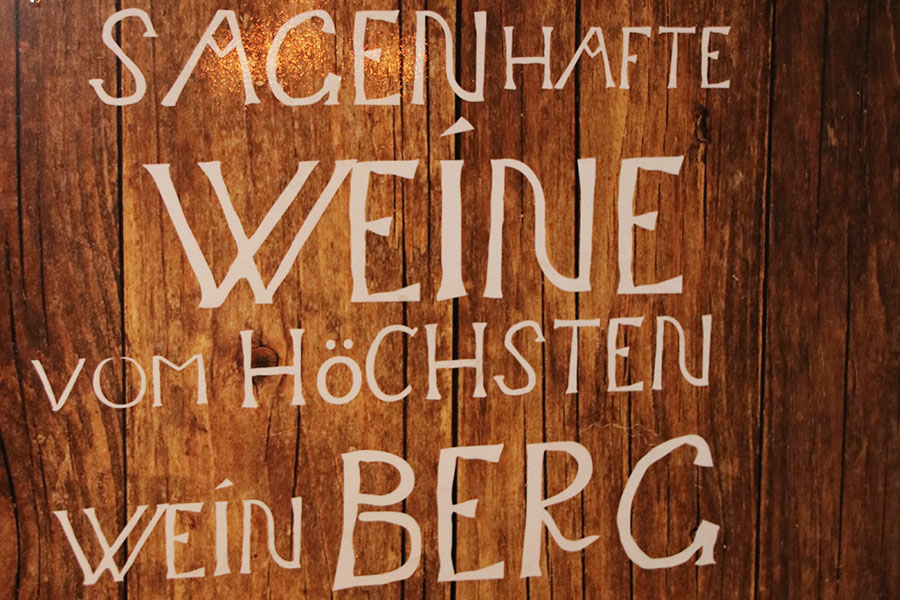 SAGENHAFTE
WEÍNE
VOM HÖCHSTEN
WEÍN BERG